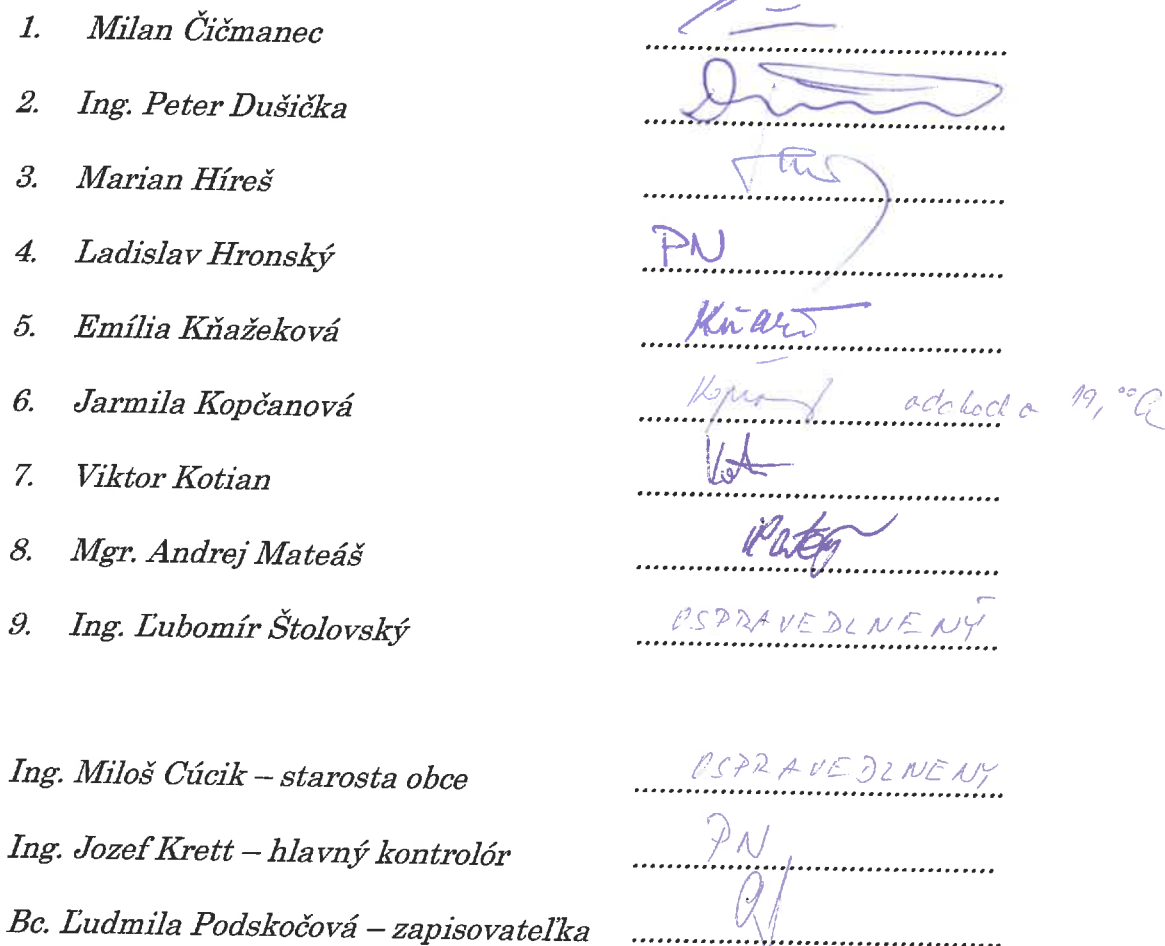 1. Milan Čičmanec
2. Ing. Peter Dušička
3. Marian Híreš
4. Ladislav Hronský PN
5. Emília Kňažeková
6. Jarmila Kopčanová odchod o 19,°°
7. Viktor Kotian
8. Mgr. Andrej Mateáš
9. Ing. Ľubomír Štolovský OSPRAVEDLNENÝ
Ing. Miloš Cúcik – starosta obce OSPRAVEDLNENÝ
Ing. Jozef Krett – hlavný kontrolór PN
Bc. Ľudmila Podskočová – zapisovateľka